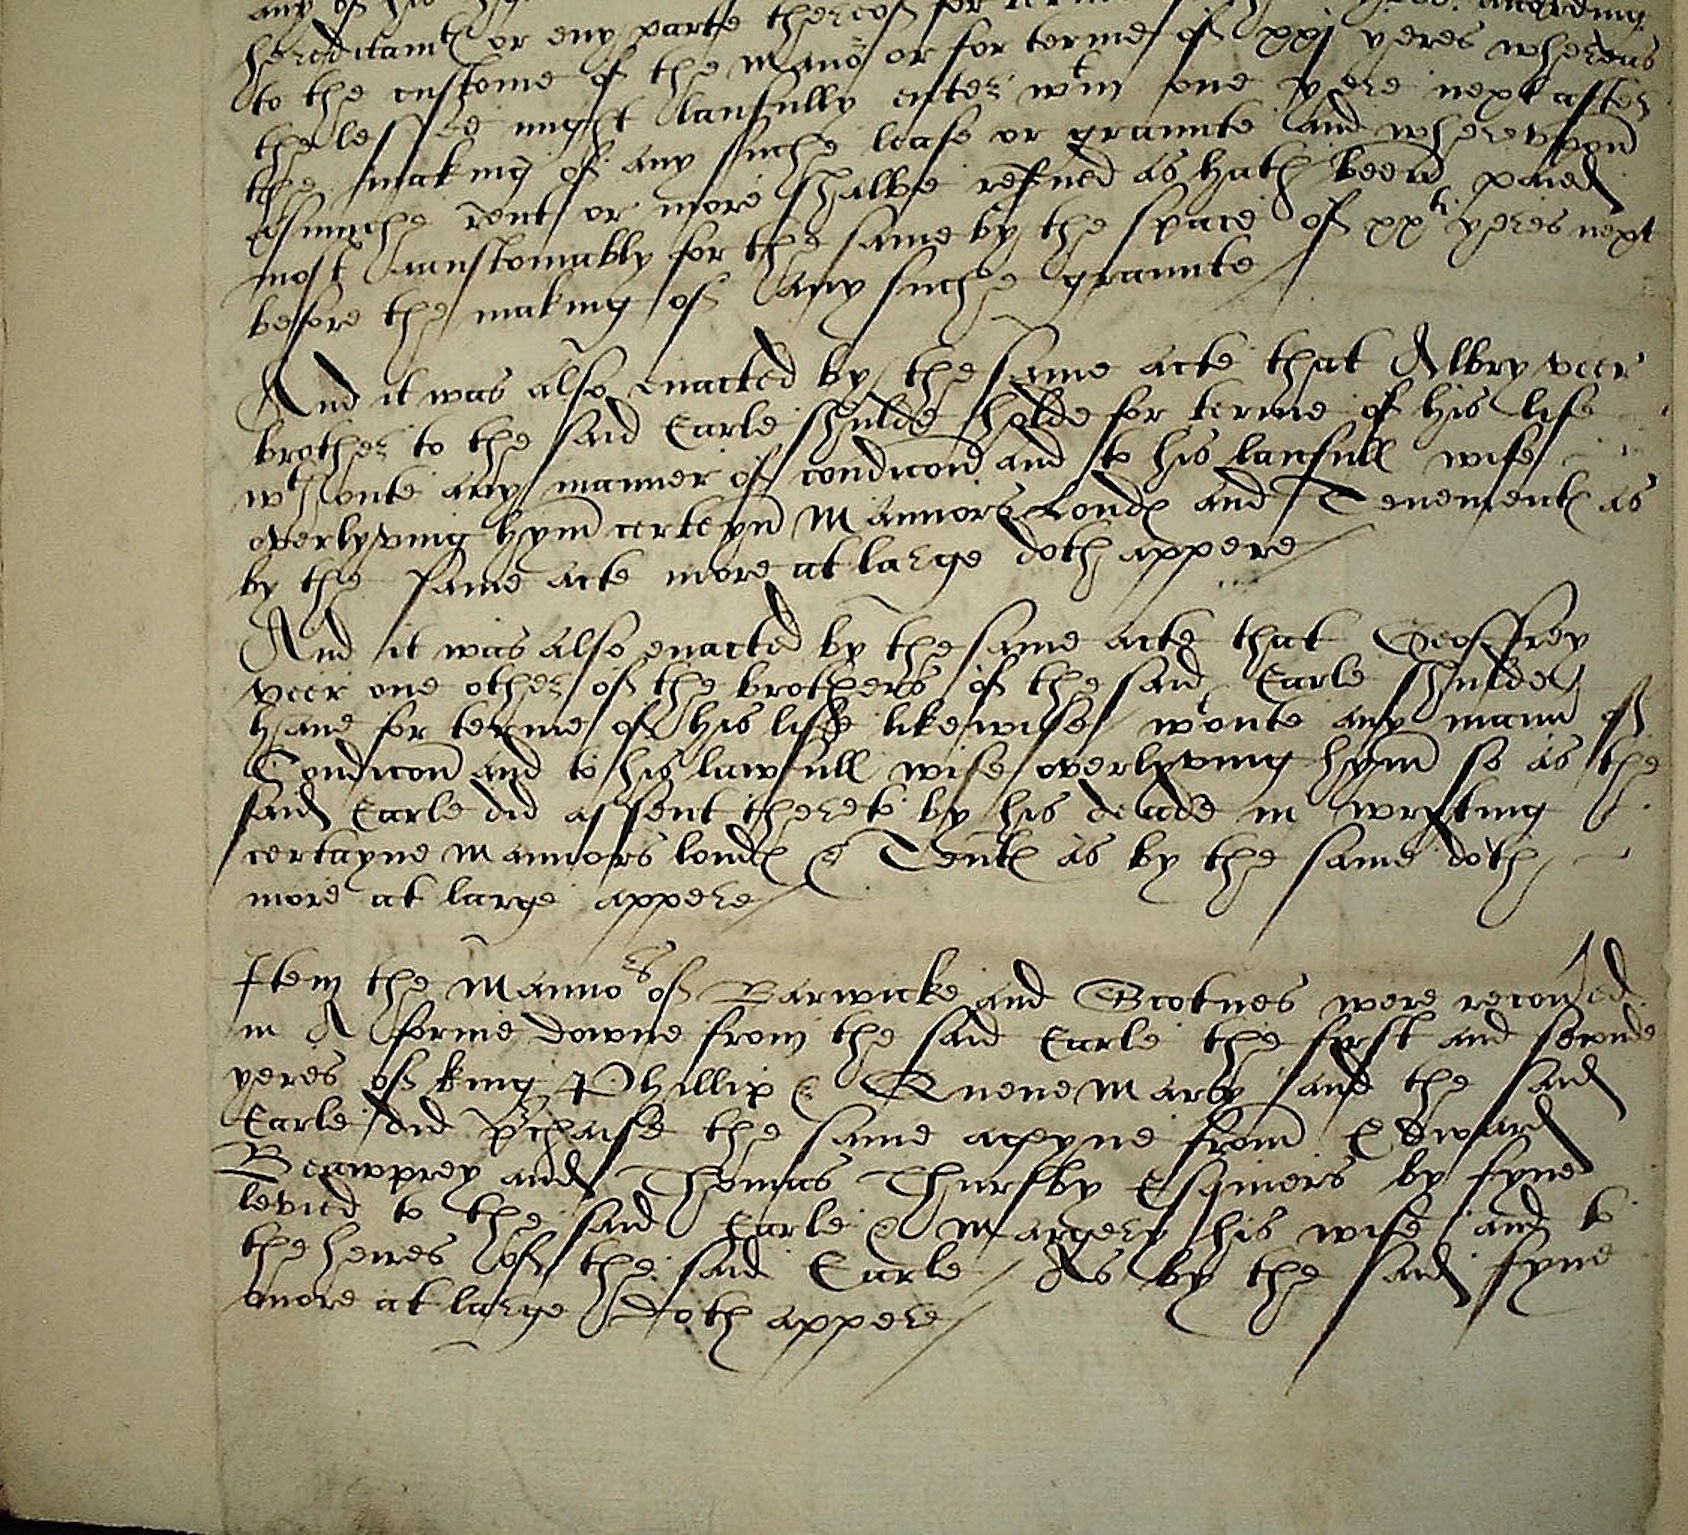 any of his
hereditamts or eny parte thereof for terme of lyves according
to the custome of the Mano'r or for terme of xxj yeres whereas
the lessee might laufully enter wtin one yere next after
the making of any suche lease or graunte and wherevpon
Asmuche rent or more shalbe resrued as hath been paied
most accustomably for the same by the space of xxti yeres next
before the making of any suche graunte
And it was also enacted by the same acte that Albry veer
brother to the said Earle shulde holde for terme of his life
wthoute any manner of condicon and to his laufull wife
overlyving hym certeyn Mannors Londs and Tenements as
by the same acte more at large doth appere
And it was also enacted by the same acte that Geoffrey
veer one other of the brothers of the said Earle shulde
haue for terme of his life likewise wtoute any mann of
Condicon and to his lawfull wife overlyving hym so as the
said Earle did assent thereto by his deade in wryting
certayne Mannors londs & Tents as by the same doth
more at large appere
Item the Manno'rs of Barwicke and Scotnes were recoued
in A forme downe from the said Earle the fyrst and seconde
yeres of king Phillip & Quene Mary and the said
Earle did p'chaise the same agayne from Edward
Beawprey and Thomas Thursby Esquiers by fyne
levied to the said Earle & Margery his wife and to
the heires of the said Earle As by the said fyne
more at large Doth appere